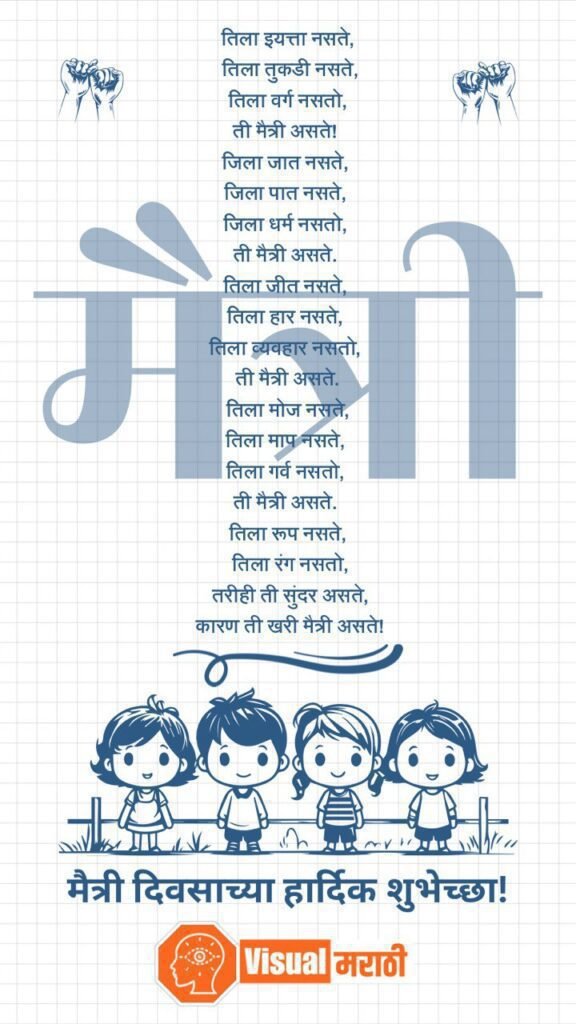 तिला इयत्ता नसते,
तिला तुकडी नसते,
तिला वर्ग नसतो,
ती मैत्री असते!
जिला जात नसते,
जिला पात नसते,
जिला धर्म नसतो,
ती मैत्री असते.
तिला जीत नसते,
तिला हार नसते,
तिला व्यवहार नसतो,
ती मैत्री असते.
तिला मोज नसते,
तिला माप नसते,
तिला गर्व नसतो,
ती मैत्री असते.
तिला रूप नसते,
तिला रंग नसतो,
तरीही ती सुंदर असते,
कारण ती खरी मैत्री असते!
मैत्री
मैत्री दिवसाच्या हार्दिक शुभेच्छा!
Visual मराठी